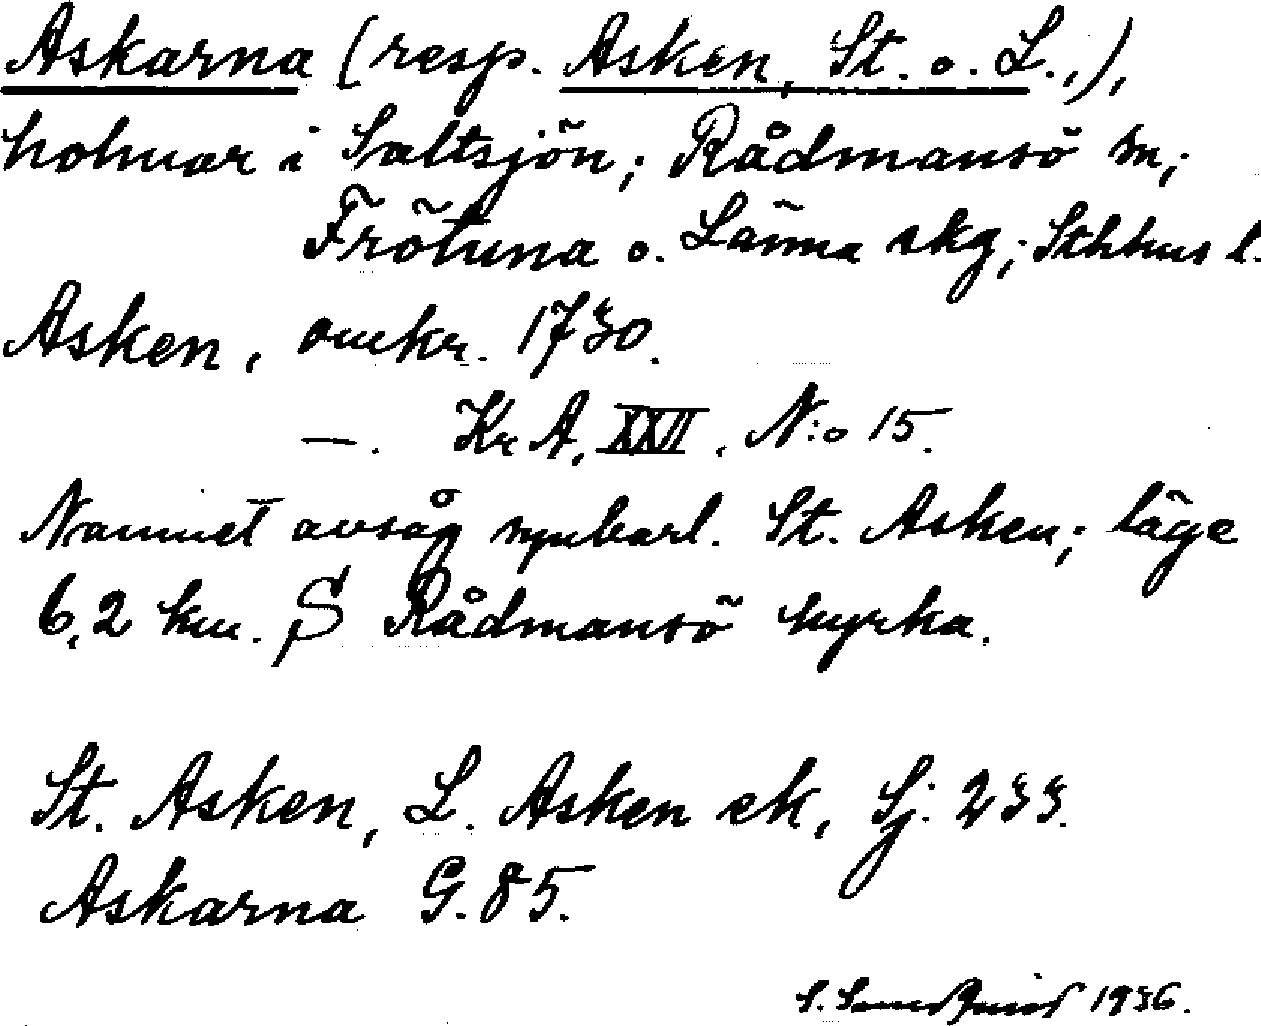 Askarna (resp. Asken, St. o. L.,),
holmar i Saltsjön; Rådmansö sn,;
Frötuna o. Länna skg; Sthlms l.
Asken, omkr. 1730.
—. Kr A, XXII, N:o 15.
Namnet avsåg synbarl. St. Asken; läge
6,2 km. S Rådmansö kyrka.
St. Asken, L. Asken ek, Sj: 233.
Askarna G. 85.
S. 1936.